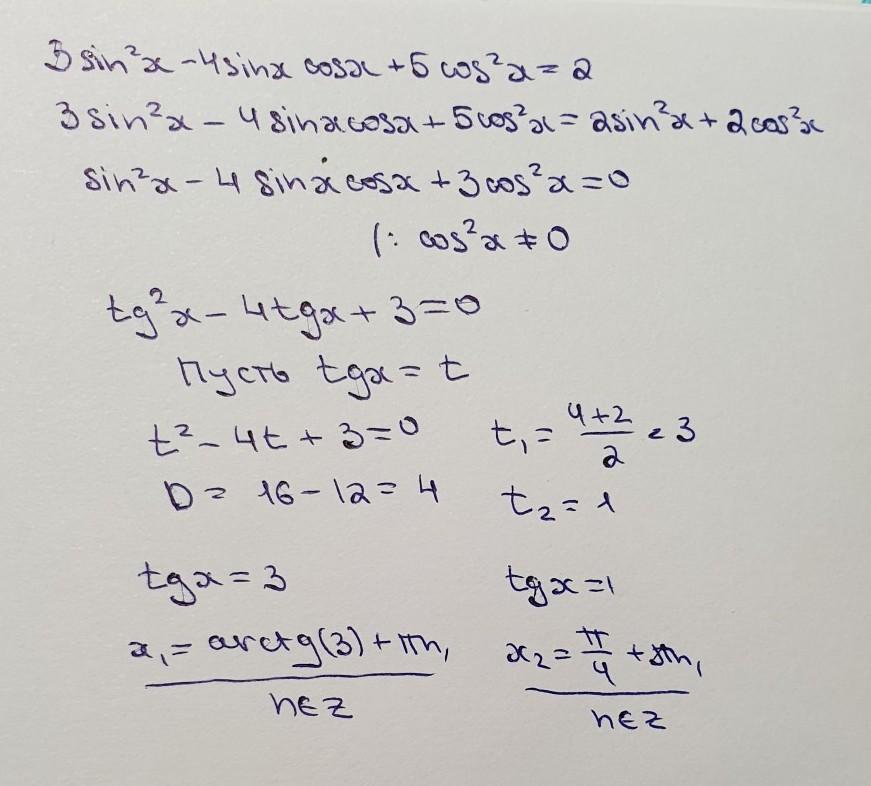 3 sin²x - 4 sinx cosx + 5 cos²x = 2
3 sin²x - 4 sinx cosx + 5 cos²x = 2 sin²x + 2 cos²x
sin²x - 4 sinx cosx + 3 cos²x = 0
|: cos²x ≠ 0
tg²x - 4tgx + 3 = 0
Пусть tgx = t
t² - 4t + 3 = 0
D = 16 - 12 = 4
t₁ = (4+2)/2 = 3
t₂ = 1
tgx = 3
x₁ = arctg(3) + πn,
n∈Z
tgx = 1
x₂ = π/4 + πn,
n∈Z